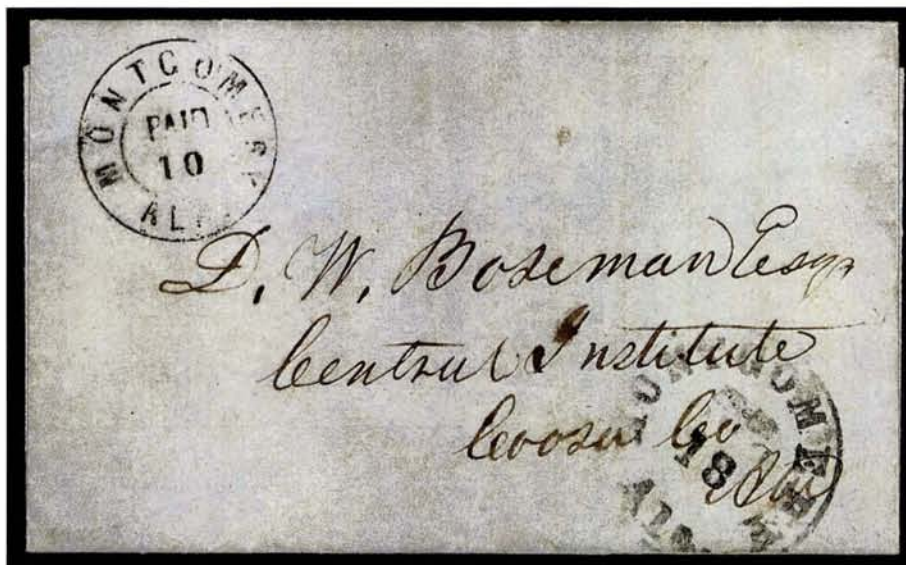 MONTGOMERY
PAID
10
ALA.
D. W. Boseman Esqr
Central Institute
Coosa Co
Ala
MONTGOMERY
18
ALA